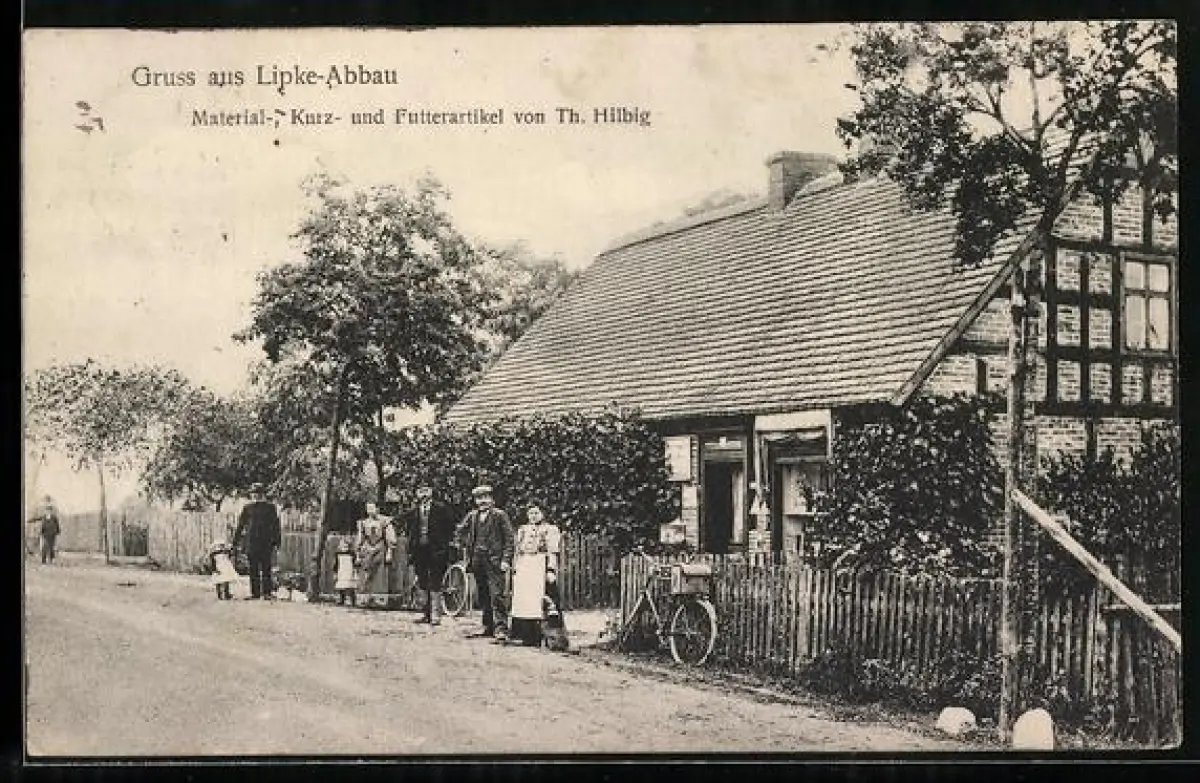 Gruss aus Lipke-Abbau
Material-, Kurz- und Futterartikel von Th. Hilbig